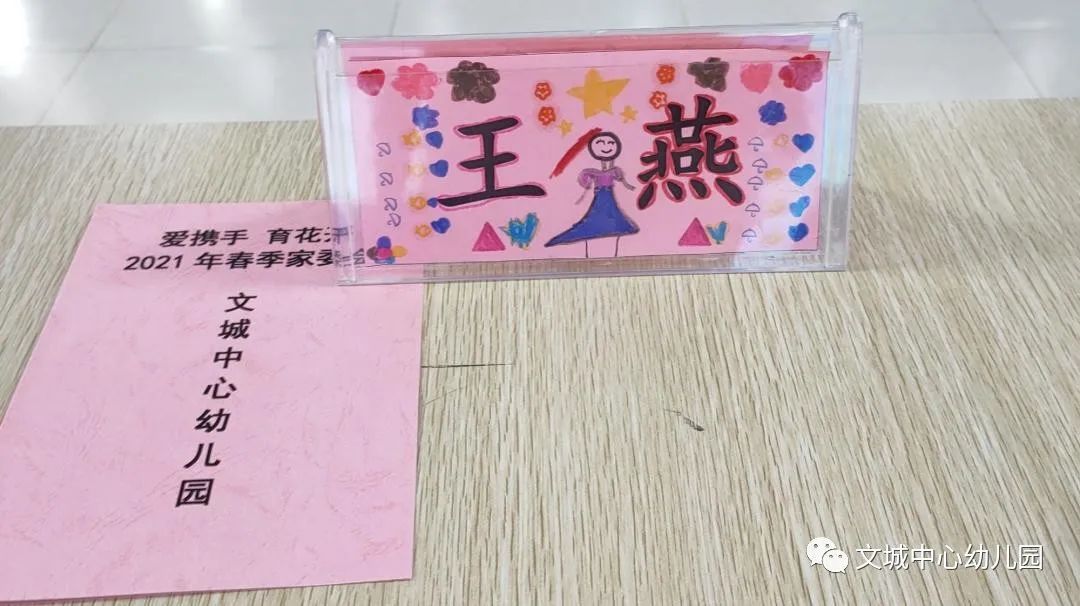 王燕
爱携手 育花开
2021 年春季家委会
文城中心幼儿园
文城中心幼儿园